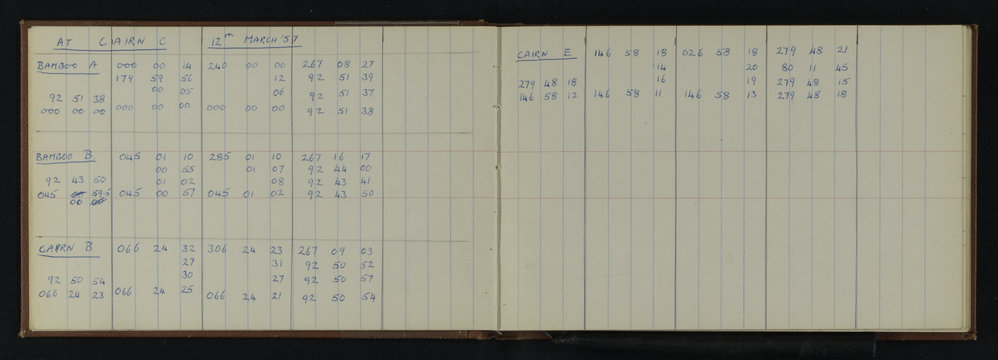 AT CAIRN C 12th MARCH '57
BAMBOO A 000 00 14 240 00 00 267 08 27
179 59 56 12 92 51 39
00 05 06 92 51 37
92 51 38
000 00 00 000 00 00 000 00 00 92 51 38
BAMBOO B 045 01 10 285 01 10 267 16 17
00 55 01 07 92 44 00
92 43 50 01 02 08 92 43 41
045 00 59.5 045 00 57 045 01 02 92 43 50
00
CAIRN B 066 24 32 306 24 23 267 09 03
27 31 92 50 52
92 50 54 30 27 92 50 57
066 24 23 066 24 25 066 24 21 92 50 54
CAIRN E 146 58 18 026 58 18 279 48 21
14 20 80 11 45
279 48 18 16 19 279 48 15
146 58 12 146 58 11 146 58 13 279 48 18